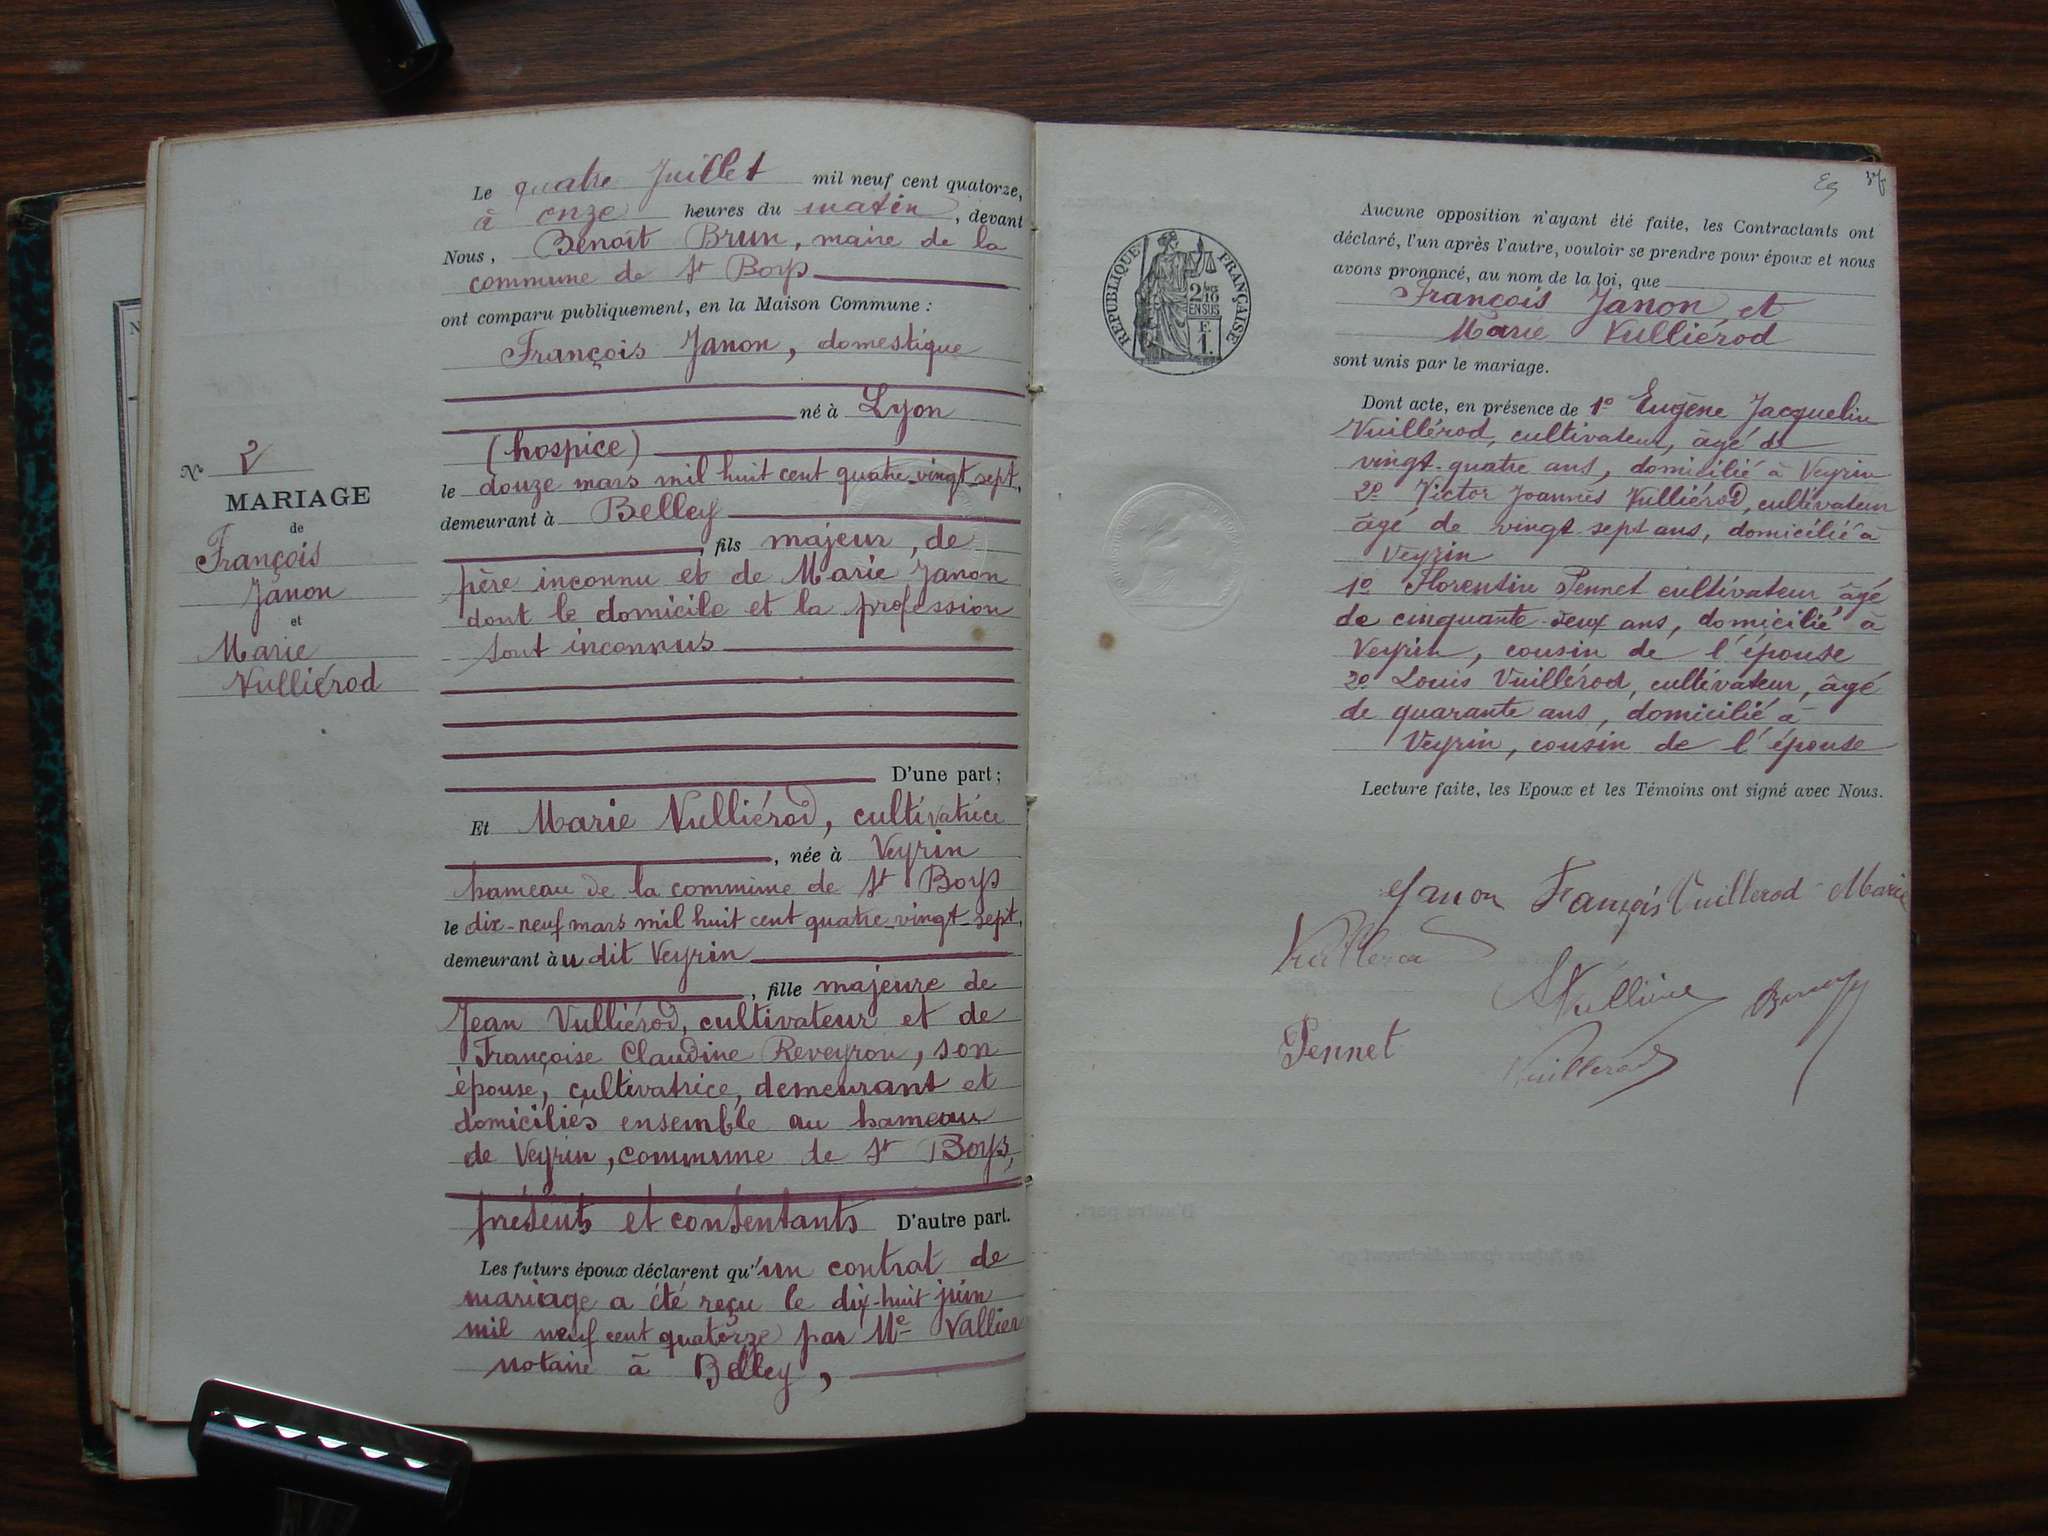 Le quatre Juillet mil neuf cent quatorze,
à onze heures du matin, devant
Nous, Benoît Brun, maire de la
commune de St Boys
ont comparu publiquement, en la Maison Commune :
François Janon, domestique
né à Lyon
(hospice)
le douze mars mil huit cent quatre-vingt sept,
demeurant à Belley
, fils majeur, de
père inconnu et de Marie Janon
dont le domicile et la profession
sont inconnus
D'une part ;
Et Marie Vulliérod, cultivatrice
, née à Veyrin
hameau de la commune de St Boys
le dix-neuf mars mil huit cent quatre-vingt-sept,
demeurant à u dit Veyrin
, fille majeure de
Jean Vulliérod, cultivateur et de
Françoise Claudine Reveyron, son
épouse, cultivatrice, demeurant et
domiciliés ensemble au hameau
de Veyrin, commune de St Boys,
présents et consentants D'autre part.
Les futurs époux déclarent qu'un contrat de
mariage a été reçu le dix-huit juin
mil neuf cent quatorze par Me Vallier
notaire à Belley,
No 2
MARIAGE
de
François
Janon
et
Marie
Vulliérod
REPUBLIQUE FRANÇAISE
2/10
EN SUS
F.
1.
Aucune opposition n'ayant été faite, les Contractants ont
déclaré, l'un après l'autre, vouloir se prendre pour époux et nous
avons prononcé, au nom de la loi, que
François Janon, et
Marie Vulliérod
sont unis par le mariage.
Dont acte, en présence de 1o Eugène Jacquelin
Vuillérod, cultivateur, âgé de
vingt-quatre ans, domicilié à Veyrin
2o Victor Joannès Vulliérod, cultivateur
âgé de vingt sept ans, domicilié à
Veyrin
1o Florentin Pennet cultivateur âgé
de cinquante-deux ans, domicilié à
Veyrin, cousin de l'épouse
2o Louis Vuillérod, cultivateur, âgé
de quarante ans, domicilié à
Veyrin, cousin de l'épouse
Lecture faite, les Epoux et les Témoins ont signé avec Nous.
Janon François Vuillerod Marie
Pennet
Vuillerod